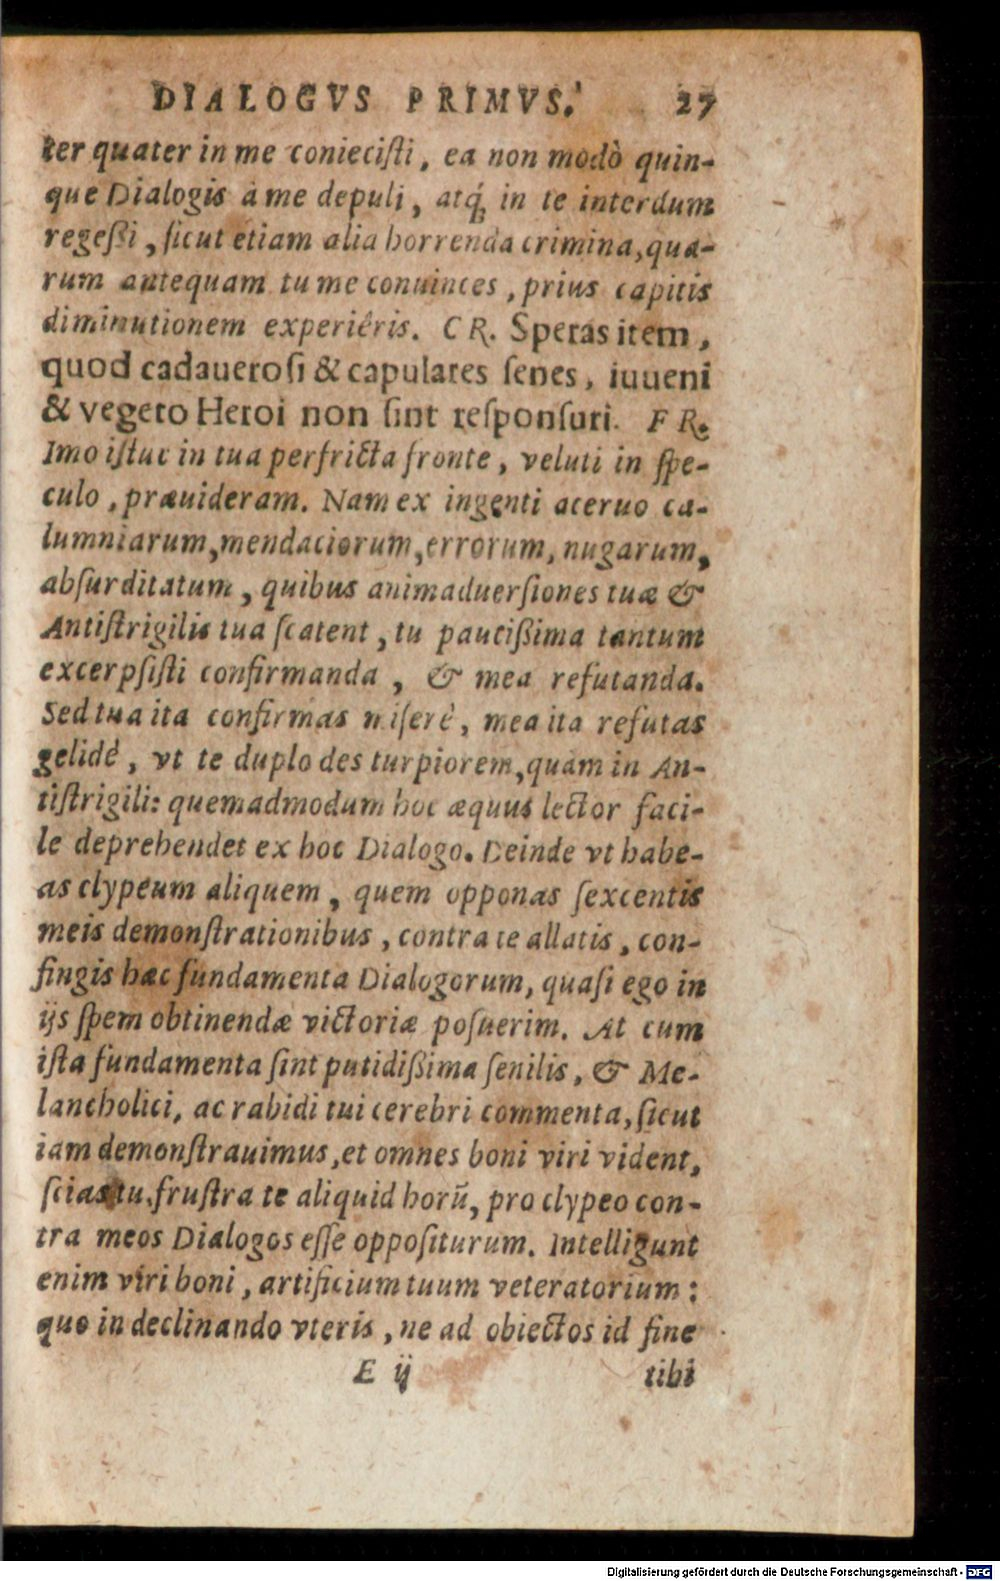 DIALOGVS PRIMVS. 27
ter quater in me coniecisti, ea non modò quin-
que Dialogis à me depuli, atq́; in te interdum
regeßi, sicut etiam alia horrenda crimina, qua-
rum antequam tu me conuinces, prius capitis
diminutionem experiêris. CR. Speras item,
quod cadauerosi & capulares senes, iuueni
& vegeto Heroi non sint responsuri. FR.
Imo istuc in tua perfricta fronte, veluti in spe-
culo, præuideram. Nam ex ingenti aceruo ca-
lumniarum, mendaciorum, errorum, nugarum,
absurditatum, quibus animaduersiones tuæ &
Antistrigilis tua scatent, tu paucißima tantum
excerpsisti confirmanda, & mea refutanda.
Sed tua ita confirmas miserè, mea ita refutas
gelidè, vt te duplo des turpiorem, quàm in An-
tistrigili: quemadmodum hoc æquus lector faci-
le deprehendet ex hoc Dialogo. Deinde vt habe-
as clypeum aliquem, quem opponas sexcentis
meis demonstrationibus, contra te allatis, con-
fingis hæc fundamenta Dialogorum, quasi ego in
ijs spem obtinendæ victoriæ posuerim. At cum
ista fundamenta sint putidißima senilis, & Me-
lancholici, ac rabidi tui cerebri commenta, sicut
iam demonstrauimus, et omnes boni viri vident,
scias tu, frustra te aliquid horũ, pro clypeo con-
tra meos Dialogos esse oppositurum. Intelligunt
enim viri boni, artificium tuum veteratorium:
quo in declinando vteris, ne ad obiectos id fine
E ij tibi
Digitalisierung gefördert durch die Deutsche Forschungsgemeinschaft - DFG